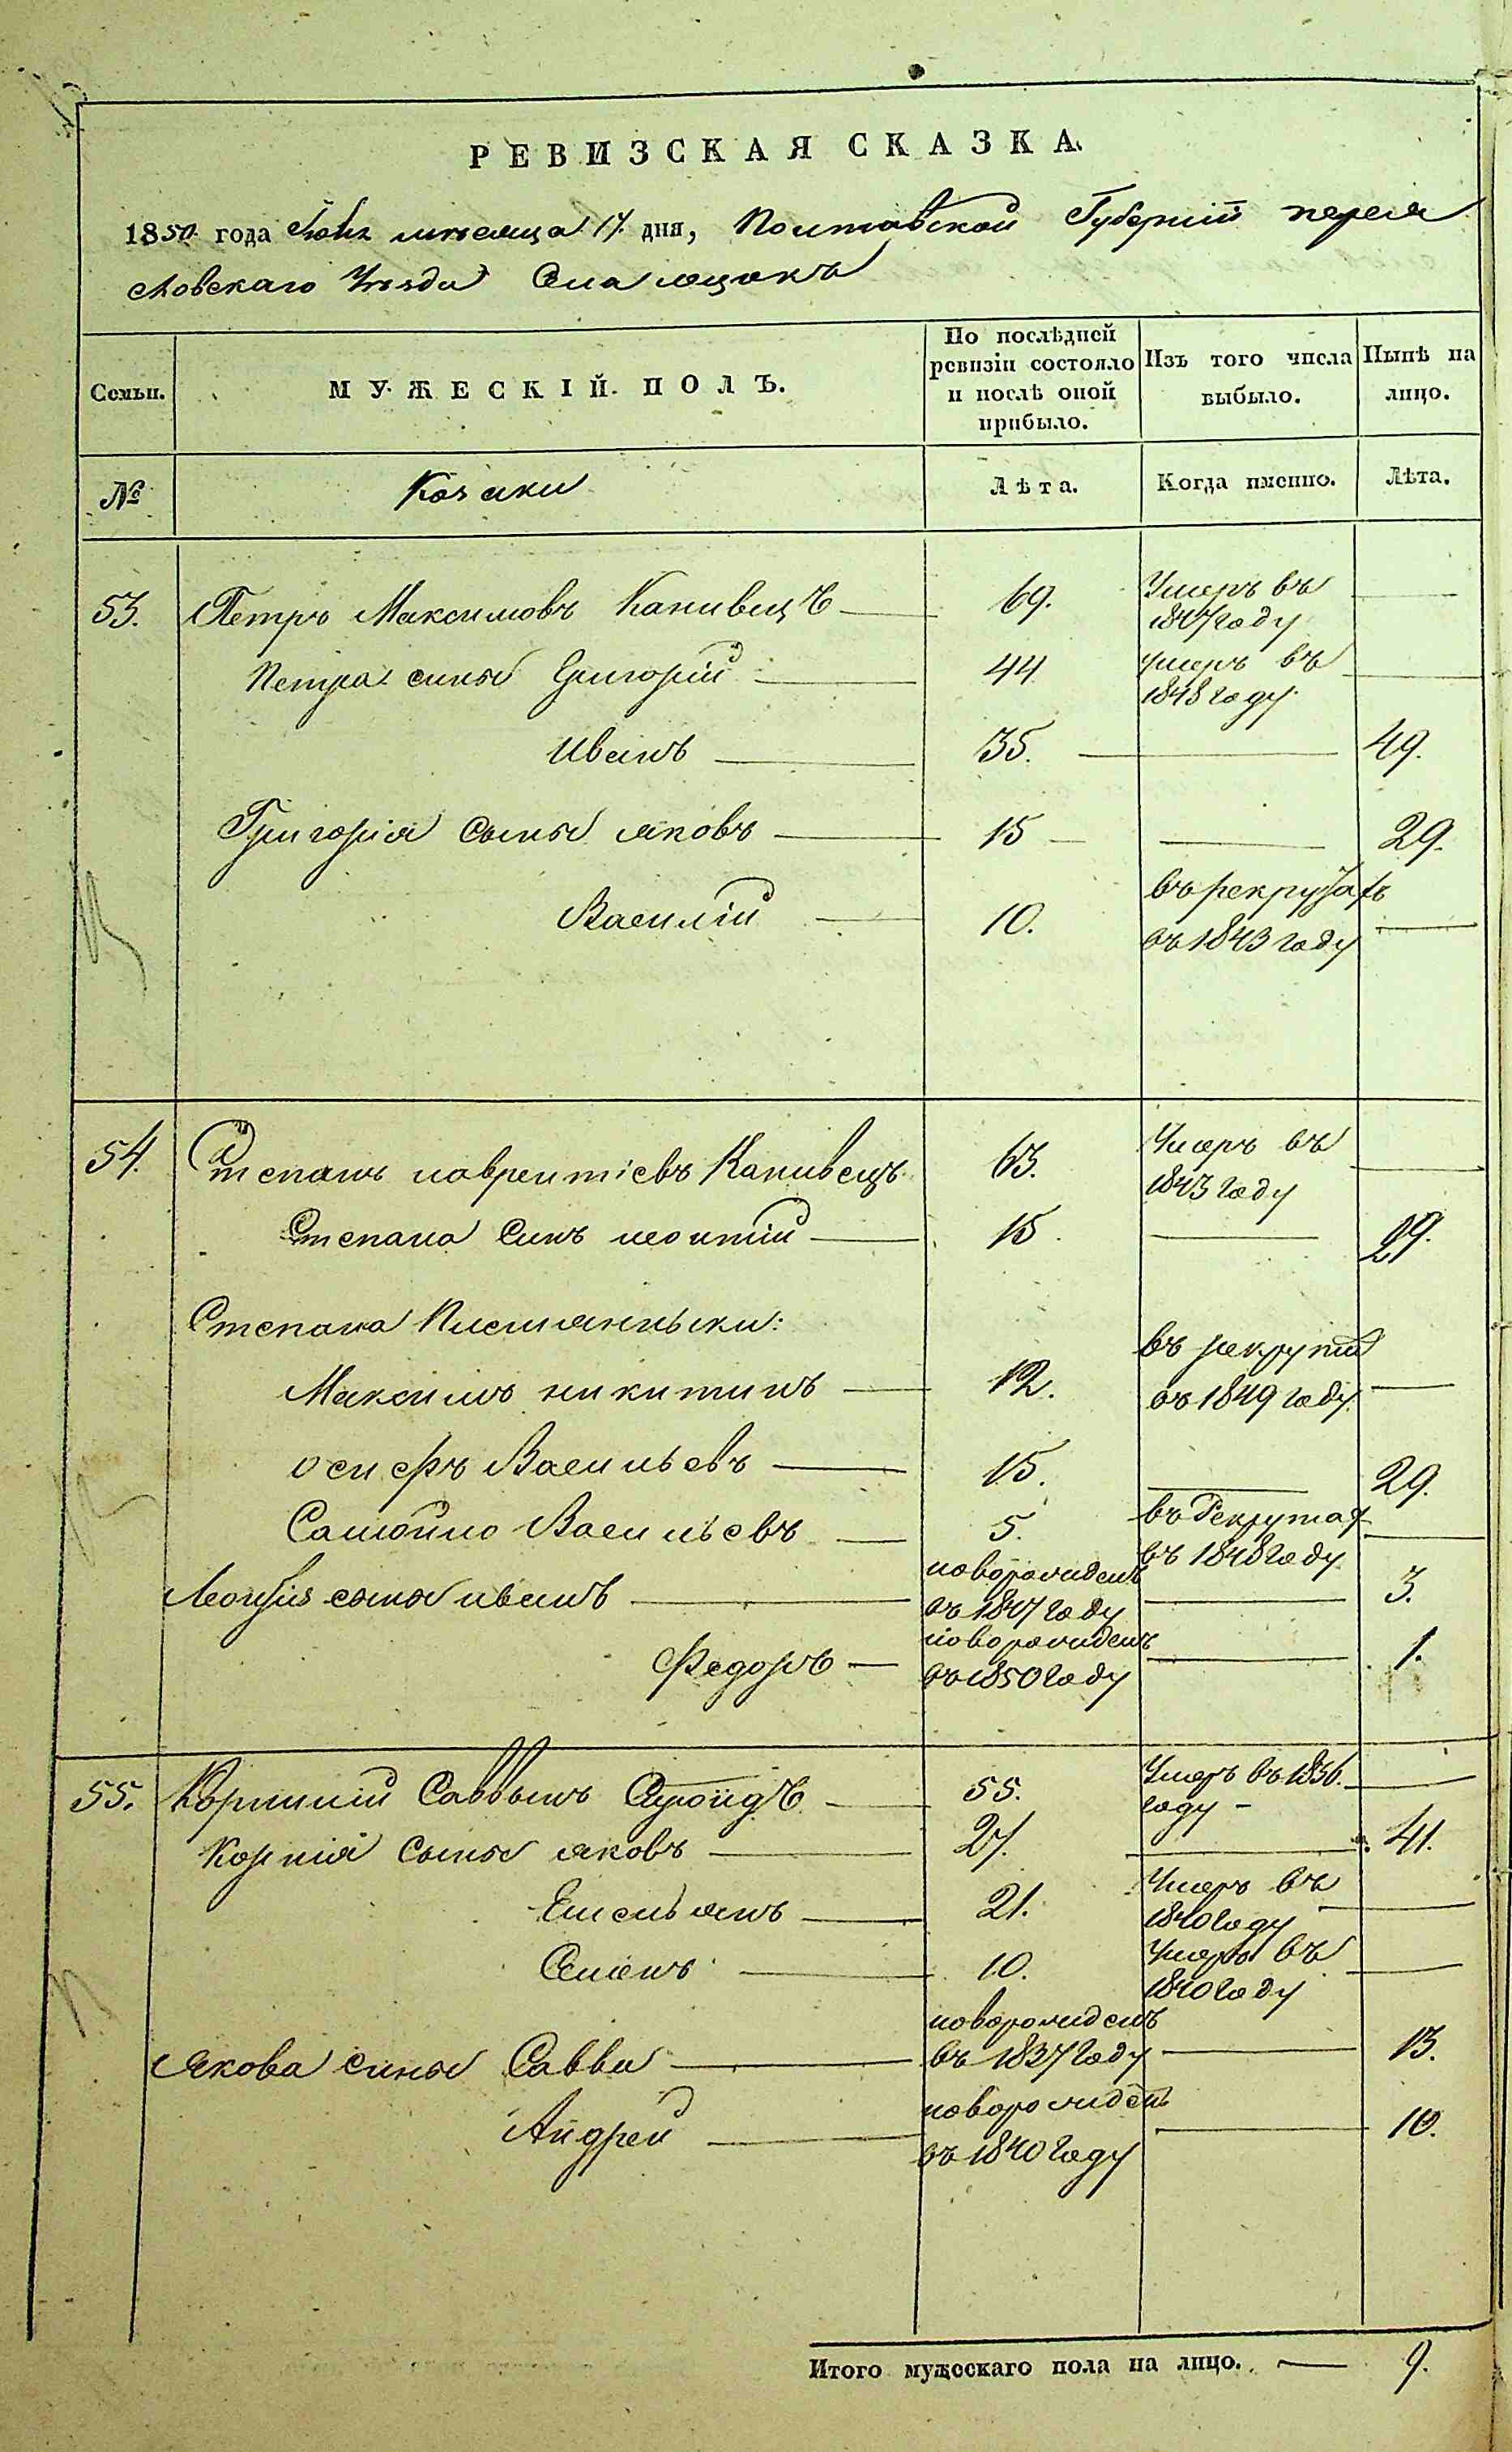 РЕВИЗСКАЯ СКАЗКА.
1850 года месяца 17 дня, Полтавской Губернии перея
словскаго Уезда
Семьи.
МУЖЕСКІЙ ПОЛЪ.
По послѣдней ревизіи состояло и послѣ оной прибыло.
Изъ того числа выбыло.
Нынѣ на лицо.
№
Козаки
Лѣта.
Когда именно.
Лѣта.
53. Петръ Максимовъ Канивецъ 69. Умеръ въ 1847 году
Петра сыны Григорій 44 умеръ въ 1848 году
Иванъ 35. 49.
Григорія Сыны яковъ 15 29.
Василій 10. въ рекрутахъ въ 1843 году
54. Степанъ лаврентіевъ Канивецъ 63. Умеръ въ 1843 году
Степана Синъ леонтій 15. 29.
Степана Племянныки:
Максимъ никитинъ 12. въ 1849 году
осифъ Васильевъ 15. 29.
Самойло Васильевъ 5. въ Рекрутах въ 1848 году
Леонтія сыны иванъ новорожденъ въ 1847 году 3.
Федоръ новорожденъ въ 1850 году 1.
55. Корнилій Саввынъ 55. Умеръ въ 1836. году
Корнія Сыны яковъ 27. 41.
Емельянъ 21. Умеръ въ 1840 году
Семенъ 10. Умеръ въ 1840 году
Якова сыны Савва новорожденъ въ 1837 году 13.
Андрей новорожденъ въ 1840 году 10.
Итого мужескаго пола на лицо. 9.